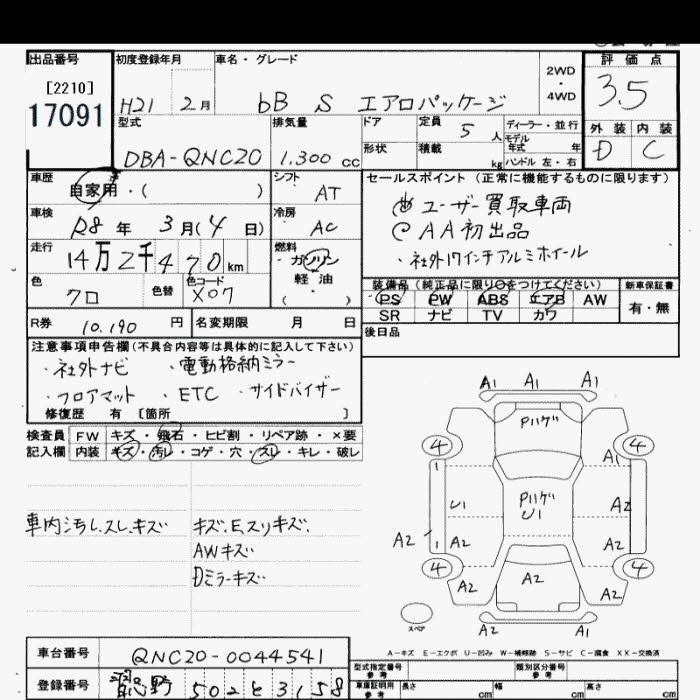 出品番号 初度登録年月 車名・グレード 2WD ・ 4WD 評価点
[2210]
17091 H21 2月 bB S エアロパッケージ 3.5
型式 排気量 ドア 定員 5人 ディーラー・並行 外装 内装
DBA-QNC20 1.300cc 形状 積載 kg モデル年式 年式 ハンドル 左・右 D C
車歴 自家用・( ) シフト AT セールスポイント (正常に機能するものに限ります)
車検 R8年 3月(4日) 冷房 AC ユーザー買取車両
AA初出品
走行 14万2千470km 燃料 ガソリン 軽油 ・( ) ・社外17インチアルミホイール
色 クロ 色替 色コード X07 装備品(純正品に限り○をつけてください) 新車保証書
PS PW ABS エアB AW 有・無
SR ナビ TV カワ
R券 10.190円 名変期限 月 日 後日品
注意事項申告欄(不具合内容等は具体的に記入して下さい)
・社外ナビ ・電動格納ミラー
・フロアマット ・ETC ・サイドバイザー
修復歴 有 [箇所 ]
検査員 FW キズ・飛石・ヒビ割・リペア跡・×要
記入欄 内装 キズ・汚れ・コゲ・穴・スレ・キレ・破レ
車内汚レ.スレ.キズ キズ.Eスリキズ.
AWキズ
Dミラーキズ
A1 A1 A1
Pハゲ
4 4
1 A1
U1 Pハゲ A2
U1
A2 1 A2 A2
4 4
A2 A2 A2
スペア
A2 A2
A-キズ E-エクボ U-凹み W-補修跡 S-サビ C-腐食 XX-交換済
車台番号 QNC20-0044541 型式指定番号 参考 類別区分番号 参考
登録番号 熊野 502 と 3158 車庫証明用 参考 長さ cm 幅 cm 高さ cm